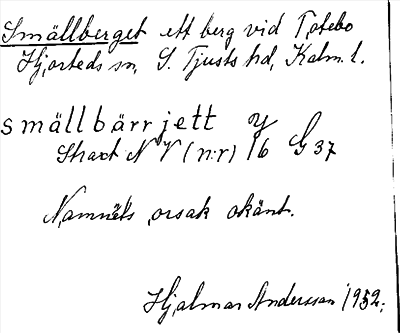 Smällberget ett berg vid Totebo
Hjorteds sn, S. Tjusts hd, Kalm. l.
smällbärrjett y
Strax N V (n:r) 16 G 37
Namnets orsak okänt.
Hjalmar Andersson 1952.